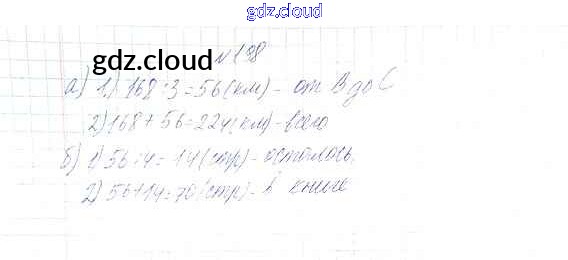 gdz.cloud
gdz.cloud
№198
а) 1) 168:3=56(км)- от В до С
2) 168+56=224(км)-всего
б) 1) 56:4=14(стр)-осталось.
2) 56+14=70(стр)-в книге